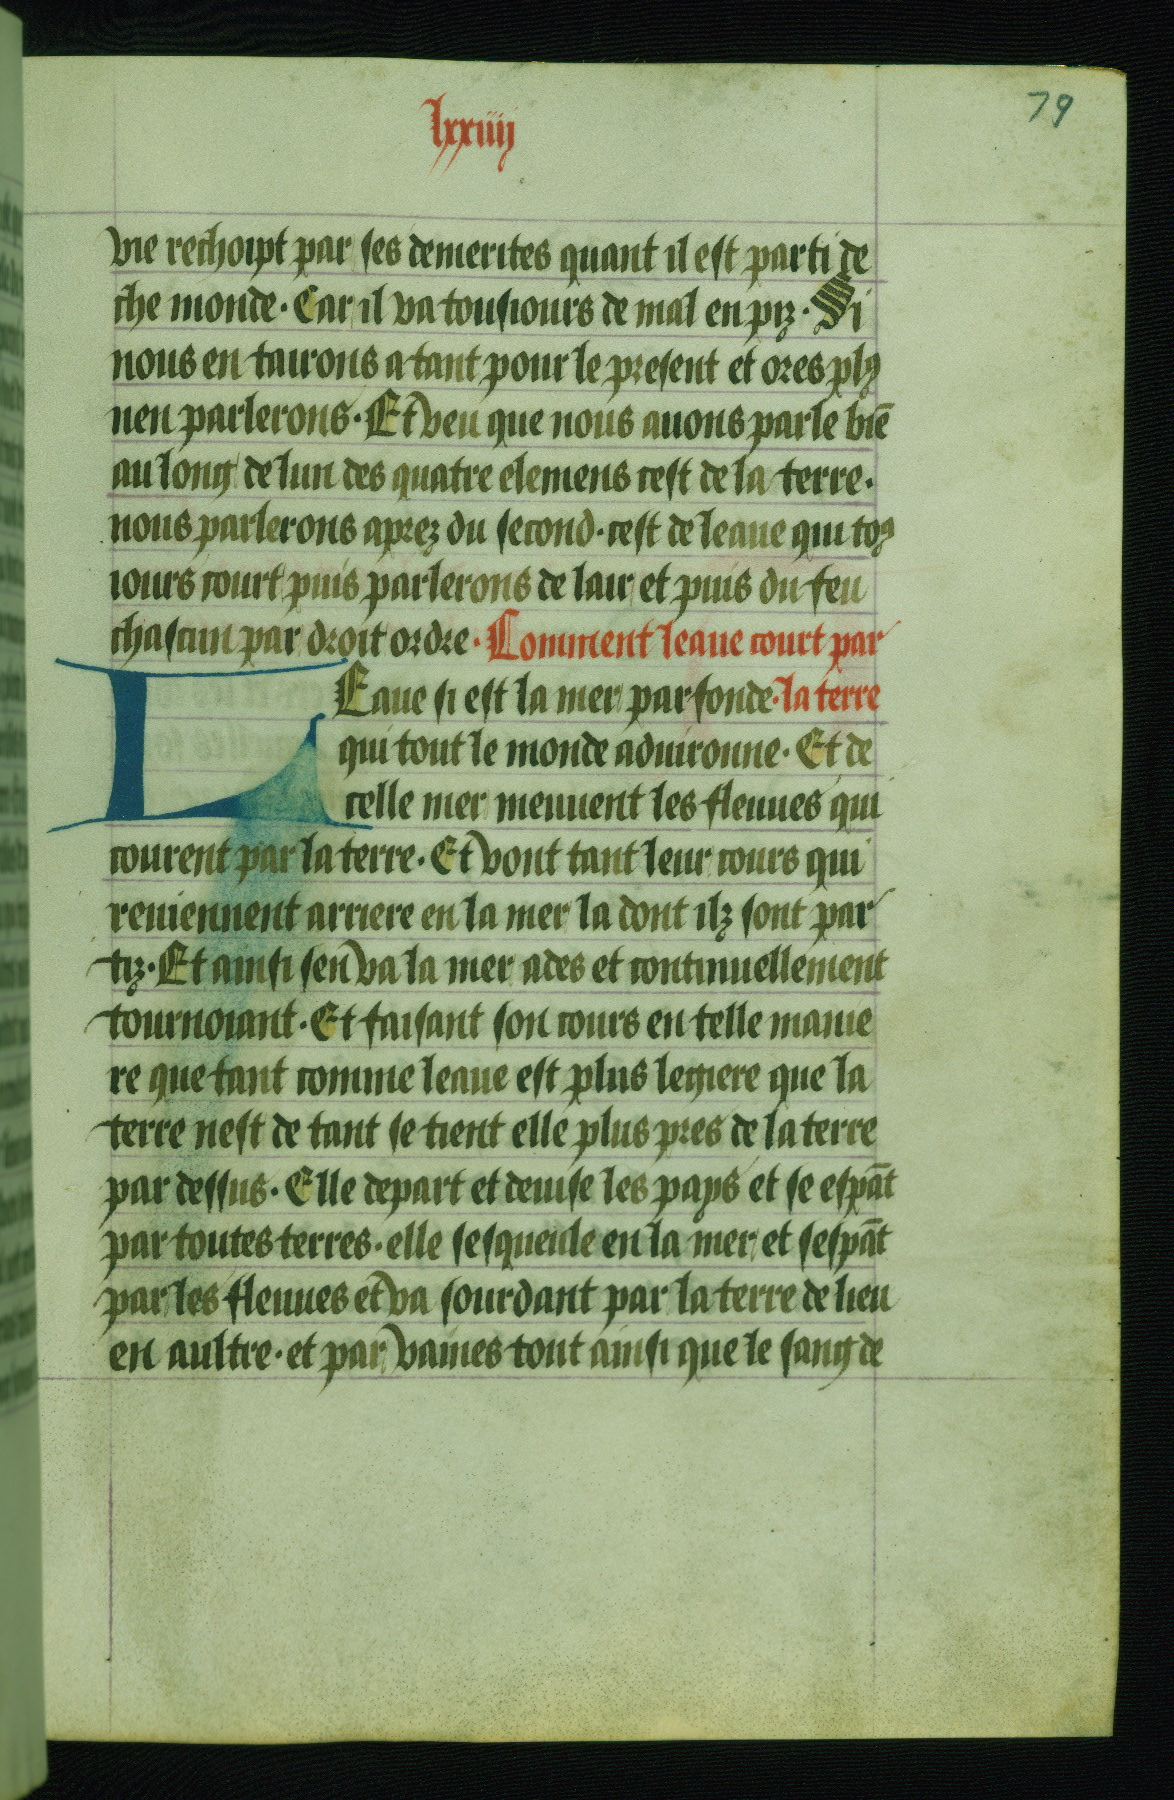 lxxiiij
79
vie rechoipt par ses demerites quant il est parti de
che monde. Car il va tousiours de mal en piz. Si
nous en tairons a tant pour le present et ores plꝰ
nen parlerons. Et veu que nous auons parle biē
au long de lun des quatre elemens cest de la terre.
nous parlerons aprez du second. cest de leaue qui toꝰ
iours court puis parlerons de lair et puis du feu
chascun par droit ordre. Comment leaue court par
LEaue si est la mer parfonde. la terre
qui tout le monde aduironne. Et de
celle mer meuuent les fleuues qui
courent par la terre. Et vont tant leur cours qui
reuiennent arriere en la mer la dont ilz sont par
tiz. Et ainsi sen va la mer ades et continuellement
tournoiant. Et faisant son cours en telle manie
re que tant comme leaue est plus legiere que la
terre nest de tant se tient elle plus pres de la terre
par dessus. Elle depart et deuise les pays et se espāt
par toutes terres. elle sesqueule en la mer et sespāt
par les fleuues et va sourdant par la terre de lieu
en aultre. et par vaines tout ainsi que le sang de